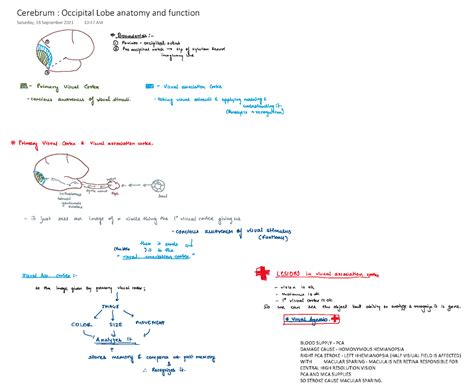 Cerebrum : Occipital Lobe anatomy and function
Saturday, 18 September 2021 10:47 AM
* Boundaries :-
① Parieto - occipital
② Pre occipital notch → tip of
imaginary line
- Primary Visual Cortex
- Visual association Cortex
- conscious awareness of visual stimuli.
- taking visual stimuli & applying meaning &
understanding it.
(Analysis & recognition)
* Primary Visual Cortex & Visual association cortex.
optic nerve
Eye
- I just sees an image of a circle thing the 1° visual cortex giving us
- conscious awareness of visual stimulus
then it sends
it to the
"visual association cortex"
Visual Ass cortex :-
as the image given by primary visual cortex ;
IMAGE
COLOR SIZE MOVEMENT
Analyzes it.
stores memory & compares w past memory
& Recognizes it.
LESIONS in visual association cortex
- vision is ok
- 1° visual cortex is ok
So we can see the object but ability to analyze & recognize it is gone.
* Visual Agnosia.
BLOOD SUPPLY - PCA
DAMAGE CAUSE - HOMONYMOUS HEMIANOPSIA
RIGHT PCA STROKE - LEFT HEMIANOPSIA (HALF VISUAL FIELD IS AFFECTED)
WITH MACULAR SPARING - MACULA IS NER RETINA RESPONSIBLE FOR
CENTRAL HIGH RESOLUTION VISION
PCA AND MCA SUPPLIES
SO STROKE CAUSE MACULAR SPARING.